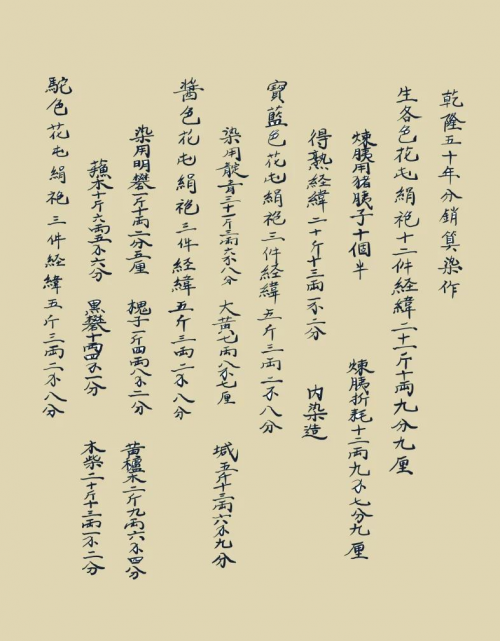 乾隆五十年分銷筭染作
生各色花屯絹袍十二件経緯二十一斤十両九分九厘
煉胰用猪胰子十個半 煉胰折耗十二両九不七分九厘
得熟経緯二十斤十三両一不二分 内染造
寶藍色花屯絹袍三件経緯五斤三両二不八分
染用靛青三十一斤三両六不八分 大黄七両八不七厘 堿五斤十三両六不九分
醬色花屯絹袍三件経緯五斤三両二不八分
染用明礬一斤十両二分五厘 槐子一斤四両八不二分 黄櫨木二斤九両六不四分
蘓木十斤六両五不六分 黒礬十両四不一分 木柴二十斤十三両一不二分
駝色花屯絹袍三件経緯五斤三両二不八分